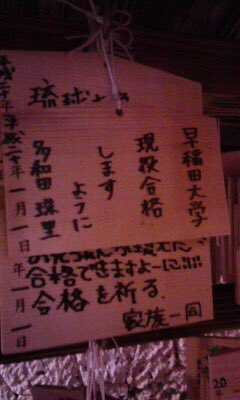 早稲田大学
現役合格
します
ように
多和田 珠里
平成二十年一月一日
琉球
平成二十年
合格できますよーに!!!!
合格を祈る。
家族一同
一月一日
20